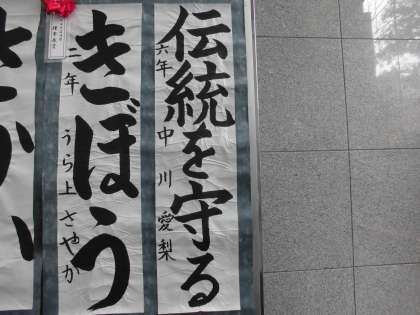 伝統を守る
六年 中川愛梨
きぼう
二年 うら上さやか